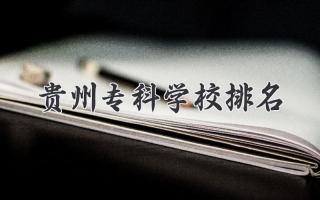 贵州专科学校排名